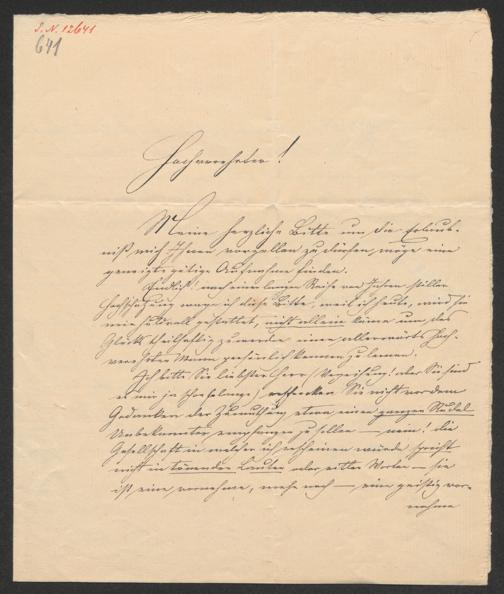 I. N. 12641
641
Hochverehrter!
Meine herzliche Bitte um die Erlaub-
niß mich Ihnen vorstellen zu dürfen, möge eine
geneigte gütige Aufnahme finden.
Endlich! nach einer langen Reise von Jahren stiller
Hochschätzung wage ich diese Bitte, weil ich heute, wird sie
mir huldvoll gestattet, nicht allein käme um des
Glücks theilhaftig zu werden einen allerwärts hoch-
verehrten Mann persönlich kennen zu lernen.
Ich bitte Sie liebster Herr (Verzeihung! aber Sie sind
es mir ja schon so lange) erschrecken Sie nicht vor dem
Gedanken der Zumuthung etwa einen ganzen Rudel
Unbekannter empfangen zu sollen — nein! die
Gesellschaft in welcher ich erscheinen würde spricht
nicht in tönenden Lauten oder eitlen Worten — sie
ist eine vornehme, mehr noch — eine geistig vor-
nehme